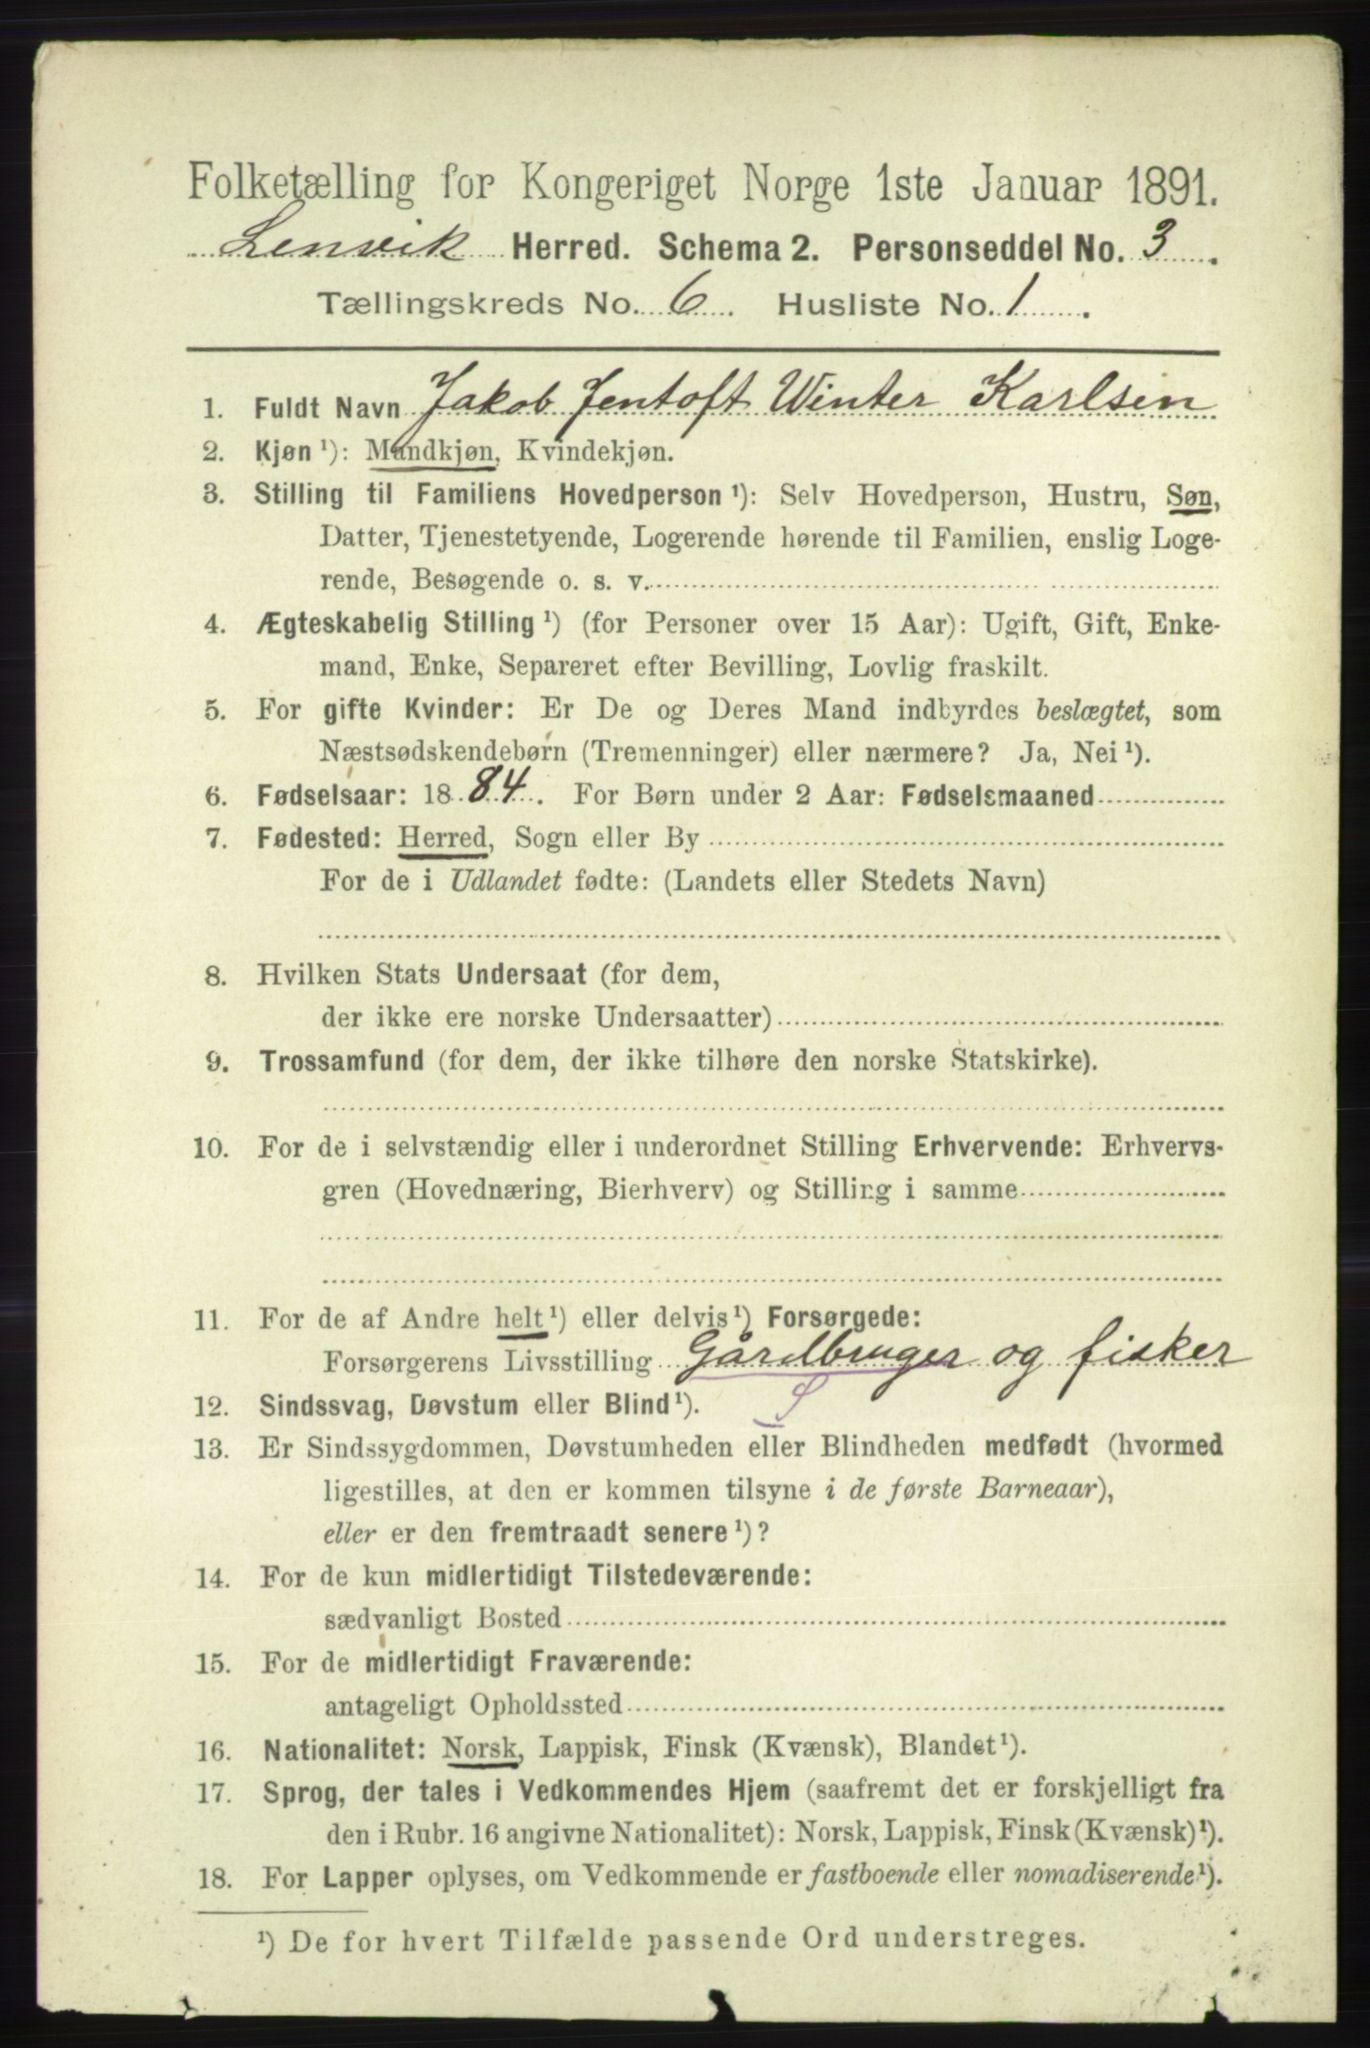 Folketælling for Kongeriget Norge 1ste Januar 1891.
Lenvik Herred. Schema 2. Personseddel No. 3.
Tællingskreds No. 6. Husliste No. 1.
1. Fuldt Navn Jakob Jentoft Winter Karlsen
2. Kjøn ¹): Mandkjøn, Kvindekjøn.
3. Stilling til Familiens Hovedperson ¹): Selv Hovedperson, Hustru, Søn,
Datter, Tjenestetyende, Logerende hørende til Familien, enslig Loge-
rende, Besøgende o. s. v.
4. Ægteskabelig Stilling ¹) (for Personer over 15 Aar): Ugift, Gift, Enke-
mand, Enke, Separeret efter Bevilling, Lovlig fraskilt.
5. For gifte Kvinder: Er De og Deres Mand indbyrdes beslægtet, som
Næstsødskendebørn (Tremenninger) eller nærmere? Ja, Nei ¹).
6. Fødselsaar: 1884. For Børn under 2 Aar: Fødselsmaaned
7. Fødested: Herred, Sogn eller By
For de i Udlandet fødte: (Landets eller Stedets Navn)
8. Hvilken Stats Undersaat (for dem,
der ikke ere norske Undersaatter)
9. Trossamfund (for dem, der ikke tilhøre den norske Statskirke).
10. For de i selvstændig eller i underordnet Stilling Erhvervende: Erhvervs-
gren (Hovednæring, Bierhverv) og Stilling i samme
11. For de af Andre helt ¹) eller delvis ¹) Forsørgede:
Forsørgerens Livsstilling Gårdbruger og fisker
12. Sindssvag, Døvstum eller Blind ¹). S
13. Er Sindssygdommen, Døvstumheden eller Blindheden medfødt (hvormed
ligestilles, at den er kommen tilsyne i de første Barneaar),
eller er den fremtraadt senere ¹)?
14. For de kun midlertidigt Tilstedeværende:
sædvanligt Bosted
15. For de midlertidigt Fraværende:
antageligt Opholdssted
16. Nationalitet: Norsk, Lappisk, Finsk (Kvænsk), Blandet ¹).
17. Sprog, der tales i Vedkommendes Hjem (saafremt det er forskjelligt fra
den i Rubr. 16 angivne Nationalitet): Norsk, Lappisk, Finsk (Kvænsk) ¹).
18. For Lapper oplyses, om Vedkommende er fastboende eller nomadiserende ¹).
¹) De for hvert Tilfælde passende Ord understreges.